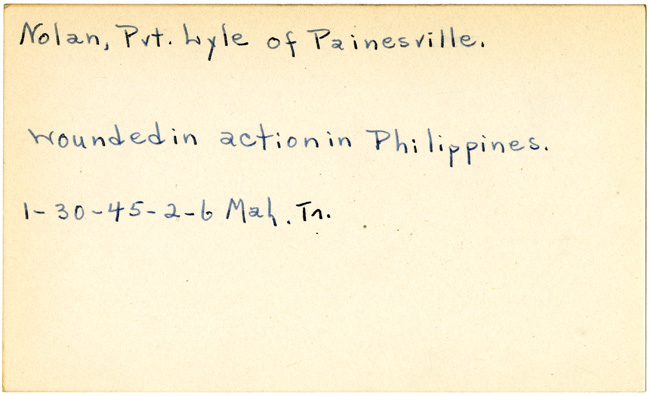 Nolan, Pvt. Lyle of Painesville.
wounded in action in Philippines.
1-30-45-2-6 Mah. Tr.